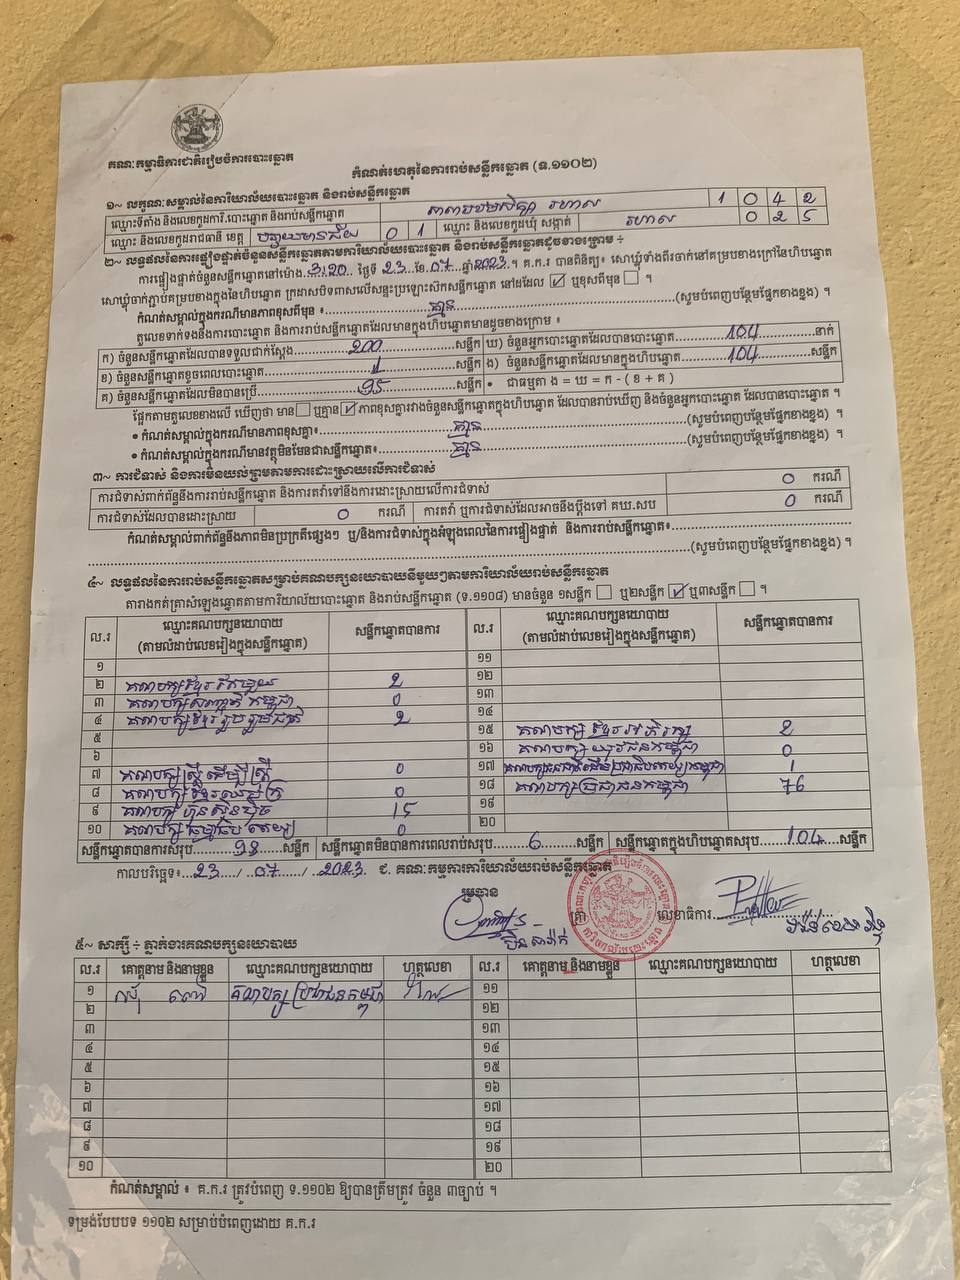 គណៈកម្មាធិការជាតិរៀបចំការបោះឆ្នោត
កំណត់ហេតុនៃការរាប់សន្លឹកឆ្នោត (ទ.១១០២)
១~ លក្ខណៈសម្គាល់នៃការិយាល័យបោះឆ្នោត និងរាប់សន្លឹកឆ្នោត
ឈ្មោះទីតាំង និងលេខកូដការិ.បោះឆ្នោត និងរាប់សន្លឹកឆ្នោត រហាល 1 0 4 2
ឈ្មោះ និងលេខកូដរាជធានី ខេត្ត បន្ទាយមានជ័យ 0 1 ឈ្មោះ និងលេខកូដឃុំ សង្កាត់ រហាល 0 2 5
២~ លទ្ធផលនៃការផ្ទៀងផ្ទាត់ចំនួនសន្លឹកឆ្នោតតាមការិយាល័យបោះឆ្នោត និងរាប់សន្លឹកឆ្នោតដូចខាងក្រោម ÷
ការផ្ទៀងផ្ទាត់ចំនួនសន្លឹកឆ្នោតនៅម៉ោង 3:20 ថ្ងៃទី 23 ខែ 07 ឆ្នាំ 2023 ។ គ.ក.រ បានពិនិត្យ៖ សោឃ្មុំទាំងពីរចាក់នៅគម្របខាងក្រៅនៃហិបឆ្នោត
សោឃ្មុំចាក់ភ្ជាប់គម្របខាងក្នុងនៃហិបឆ្នោត ក្រដាសបិទពាសលើសន្ទះប្រឡោះសឹកសន្លឹកឆ្នោត នៅដដែល ☑ ឬខុសពីមុន ☐ ។
កំណត់សម្គាល់ក្នុងករណីមានភាពខុសពីមុន ៖ គ្មាន (សូមបំពេញបន្ថែមផ្នែកខាងខ្នង) ។
តួលេខទាក់ទងនឹងការបោះឆ្នោត និងការរាប់សន្លឹកឆ្នោតដែលមានក្នុងហិបឆ្នោតមានដូចខាងក្រោម ៖
ក) ចំនួនសន្លឹកឆ្នោតដែលបានទទួលជាក់ស្តែង 200 សន្លឹក ឃ) ចំនួនអ្នកបោះឆ្នោតដែលបានបោះឆ្នោត 104 នាក់
ខ) ចំនួនសន្លឹកឆ្នោតខូចពេលបោះឆ្នោត 1 សន្លឹក ង) ចំនួនសន្លឹកឆ្នោតដែលមានក្នុងហិបឆ្នោត 104 សន្លឹក
គ) ចំនួនសន្លឹកឆ្នោតដែលមិនបានប្រើ 95 សន្លឹក • ជាធម្មតា ង = ឃ = ក - ( ខ + គ )
ផ្អែកតាមតួលេខខាងលើ ឃើញថា មាន ☐ ឬគ្មាន ☑ ភាពខុសគ្នារវាងចំនួនសន្លឹកឆ្នោតក្នុងហិបឆ្នោត ដែលបានរាប់ឃើញ និងចំនួនអ្នកបោះឆ្នោត ដែលបានបោះឆ្នោត ។
• កំណត់សម្គាល់ក្នុងករណីមានភាពខុសគ្នា៖ គ្មាន (សូមបំពេញបន្ថែមផ្នែកខាងខ្នង) ។
• កំណត់សម្គាល់ក្នុងករណីមានវត្ថុមិនមែនជាសន្លឹកឆ្នោត៖ គ្មាន (សូមបំពេញបន្ថែមផ្នែកខាងខ្នង) ។
៣~ ការជំទាស់ និងការមិនយល់ព្រមតាមការដោះស្រាយលើការជំទាស់
ការជំទាស់ពាក់ព័ន្ធនឹងការរាប់សន្លឹកឆ្នោត និងការតវ៉ាទៅនឹងការដោះស្រាយលើការជំទាស់ 0 ករណី
ការជំទាស់ដែលបានដោះស្រាយ 0 ករណី ការតវ៉ា ឬការជំទាស់ដែលអាចនឹងប្តឹងទៅ គឃ.សប 0 ករណី
កំណត់សម្គាល់ពាក់ព័ន្ធនឹងភាពមិនប្រក្រតីផ្សេងៗ ឬ/និងការជំទាស់ក្នុងអំឡុងពេលនៃការផ្ទៀងផ្ទាត់ និងការរាប់សន្លឹកឆ្នោត៖
(សូមបំពេញបន្ថែមផ្នែកខាងខ្នង) ។
៤~ លទ្ធផលនៃការរាប់សន្លឹកឆ្នោតសម្រាប់គណបក្សនយោបាយនីមួយៗតាមការិយាល័យរាប់សន្លឹកឆ្នោត
តារាងកត់ត្រាសំឡេងឆ្នោតតាមការិយាល័យបោះឆ្នោត និងរាប់សន្លឹកឆ្នោត (ទ.១១០៨) មានចំនួន ១សន្លឹក ☐ ឬ២សន្លឹក ☑ ឬ៣សន្លឹក ☐ ។
ល.រ ឈ្មោះគណបក្សនយោបាយ (តាមលំដាប់លេខរៀងក្នុងសន្លឹកឆ្នោត) សន្លឹកឆ្នោតបានការ ល.រ ឈ្មោះគណបក្សនយោបាយ (តាមលំដាប់លេខរៀងក្នុងសន្លឹកឆ្នោត) សន្លឹកឆ្នោតបានការ
១ ១១
២ គណបក្សខ្មែរឯកភាព 2 ១២
៣ គណបក្សសញ្ជាតិកម្ពុជា 0 ១៣
៤ គណបក្សខ្មែររួបរួមជាតិ 2 ១៤
៥ ១៥ គណបក្សខ្មែរអភិរក្ស 2
៦ ១៦ គណបក្សយុវជនកម្ពុជា 0
៧ គណបក្សស្ត្រីដើម្បីស្ត្រី 0 ១៧ គណបក្សជនជាតិដើមប្រជាធិបតេយ្យកម្ពុជា 1
៨ 0 ១៨ គណបក្សប្រជាជនកម្ពុជា 76
៩ គណបក្សហ៊្វុនស៊ិនប៉ិច 15 ១៩
១០ គណបក្សធម្មាធិបតេយ្យ 0 ២០
សន្លឹកឆ្នោតបានការសរុប 98 សន្លឹក សន្លឹកឆ្នោតមិនបានការពេលរាប់សរុប 6 សន្លឹក សន្លឹកឆ្នោតក្នុងហិបឆ្នោតសរុប 104 សន្លឹក
កាលបរិច្ឆេទ៖ 23 / 07 / 2023 ជ. គណៈកម្មការការិយាល័យរាប់សន្លឹកឆ្នោត
ប្រធាន ត្រា លេខាធិការ
៥~ សាក្សី ÷ ភ្នាក់ងារគណបក្សនយោបាយ
ល.រ គោត្តនាម និងនាមខ្លួន ឈ្មោះគណបក្សនយោបាយ ហត្ថលេខា ល.រ គោត្តនាម និងនាមខ្លួន ឈ្មោះគណបក្សនយោបាយ ហត្ថលេខា
១ គណបក្សប្រជាជនកម្ពុជា ១១
២ ១២
៣ ១៣
៤ ១៤
៥ ១៥
៦ ១៦
៧ ១៧
៨ ១៨
៩ ១៩
១០ ២០
កំណត់សម្គាល់ ៖ គ.ក.រ ត្រូវបំពេញ ទ.១១០២ ឱ្យបានត្រឹមត្រូវ ចំនួន ៣ច្បាប់ ។
ទម្រង់បែបបទ ១១០២ សម្រាប់បំពេញដោយ គ.ក.រ